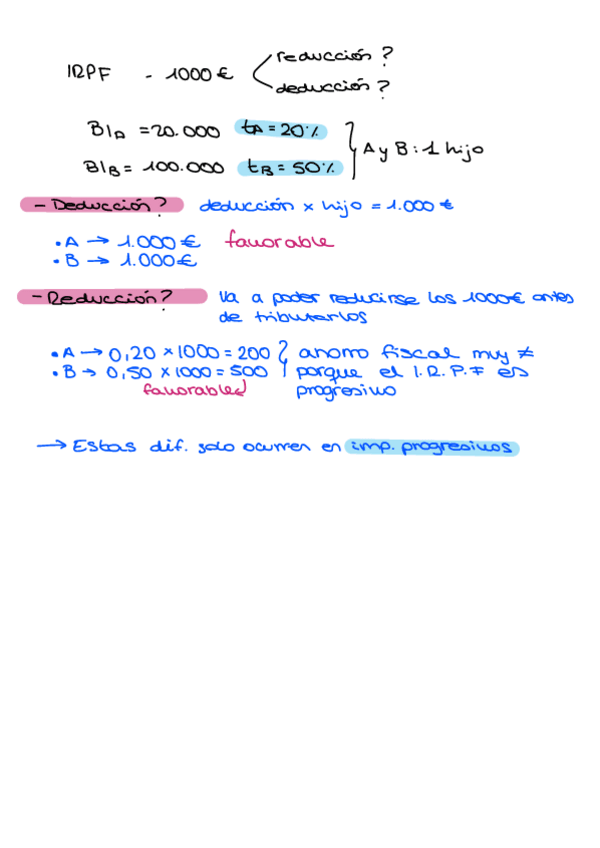 IRPF - 1000 € reducción?
deducción?
BI_A = 20.000 t_A = 20%
BI_B = 100.000 t_B = 50%
A y B : 1 hijo
- Deducción? deducción x hijo = 1.000 €
• A → 1.000 € favorable
• B → 1.000 €
- Reducción? Va a poder reducirse los 1000€ antes
de tributarlos
• A → 0,20 × 1000 = 200 ahorro fiscal muy ≠
• B → 0,50 × 1000 = 500 porque el I.R.P.F es
favorable progresivo
→ Estas dif. solo ocurren en imp. progresivos